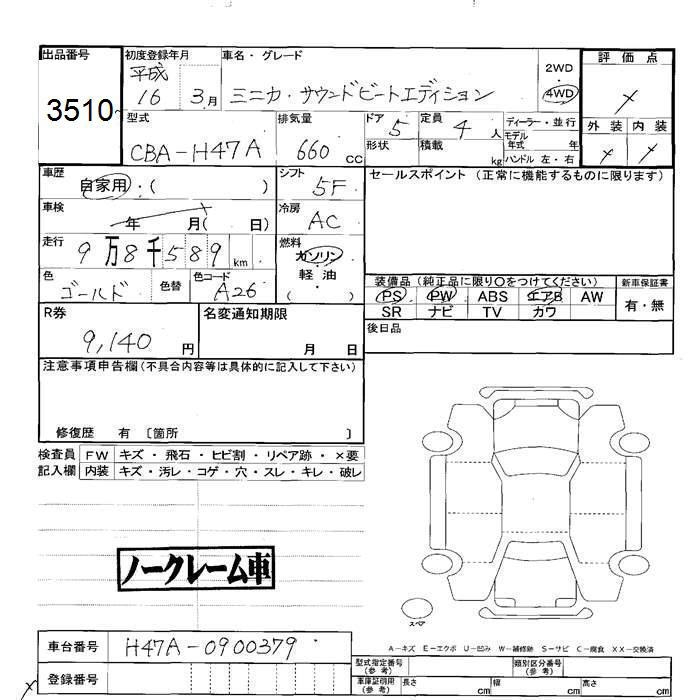 出品番号 初度登録年月 車名・グレード 2WD・4WD 評価点
3510 平成16 3月 ミニカ・サウンドビートエディション
型式 排気量 ドア 5 定員 4人 ディーラー・並行 外装 内装
CBA-H47A 660 CC 形状 積載 kg モデル年式 年
ハンドル 左・右
車歴 自家用・( ) シフト 5F セールスポイント(正常に機能するものに限ります)
車検 年 月( 日) 冷房 AC
走行 9万8千589km 燃料 ガソリン・軽油 ( )
色 ゴールド 色替 色コード A26
装備品(純正品に限り○をつけてください) 新車保証書
PS PW ABS エアB AW 有・無
SR ナビ TV カワ
R券 9,140円 名変通知期限 月 日 後日品
注意事項申告欄(不具合内容等は具体的に記入して下さい)
修復歴 有 〔箇所 〕
検査員 FW キズ・飛石・ヒビ割・リペア跡・×要
記入欄 内装 キズ・汚レ・コゲ・穴・スレ・キレ・破レ
ノークレーム車
スペア
車台番号 H47A-0900379
A-キズ E-エクボ U-凹み W-補修跡 S-サビ C-腐食 XX-交換済
登録番号 型式指定番号(参考) 類別区分番号(参考)
車庫証明用(参考) 長さ cm 幅 cm 高さ cm